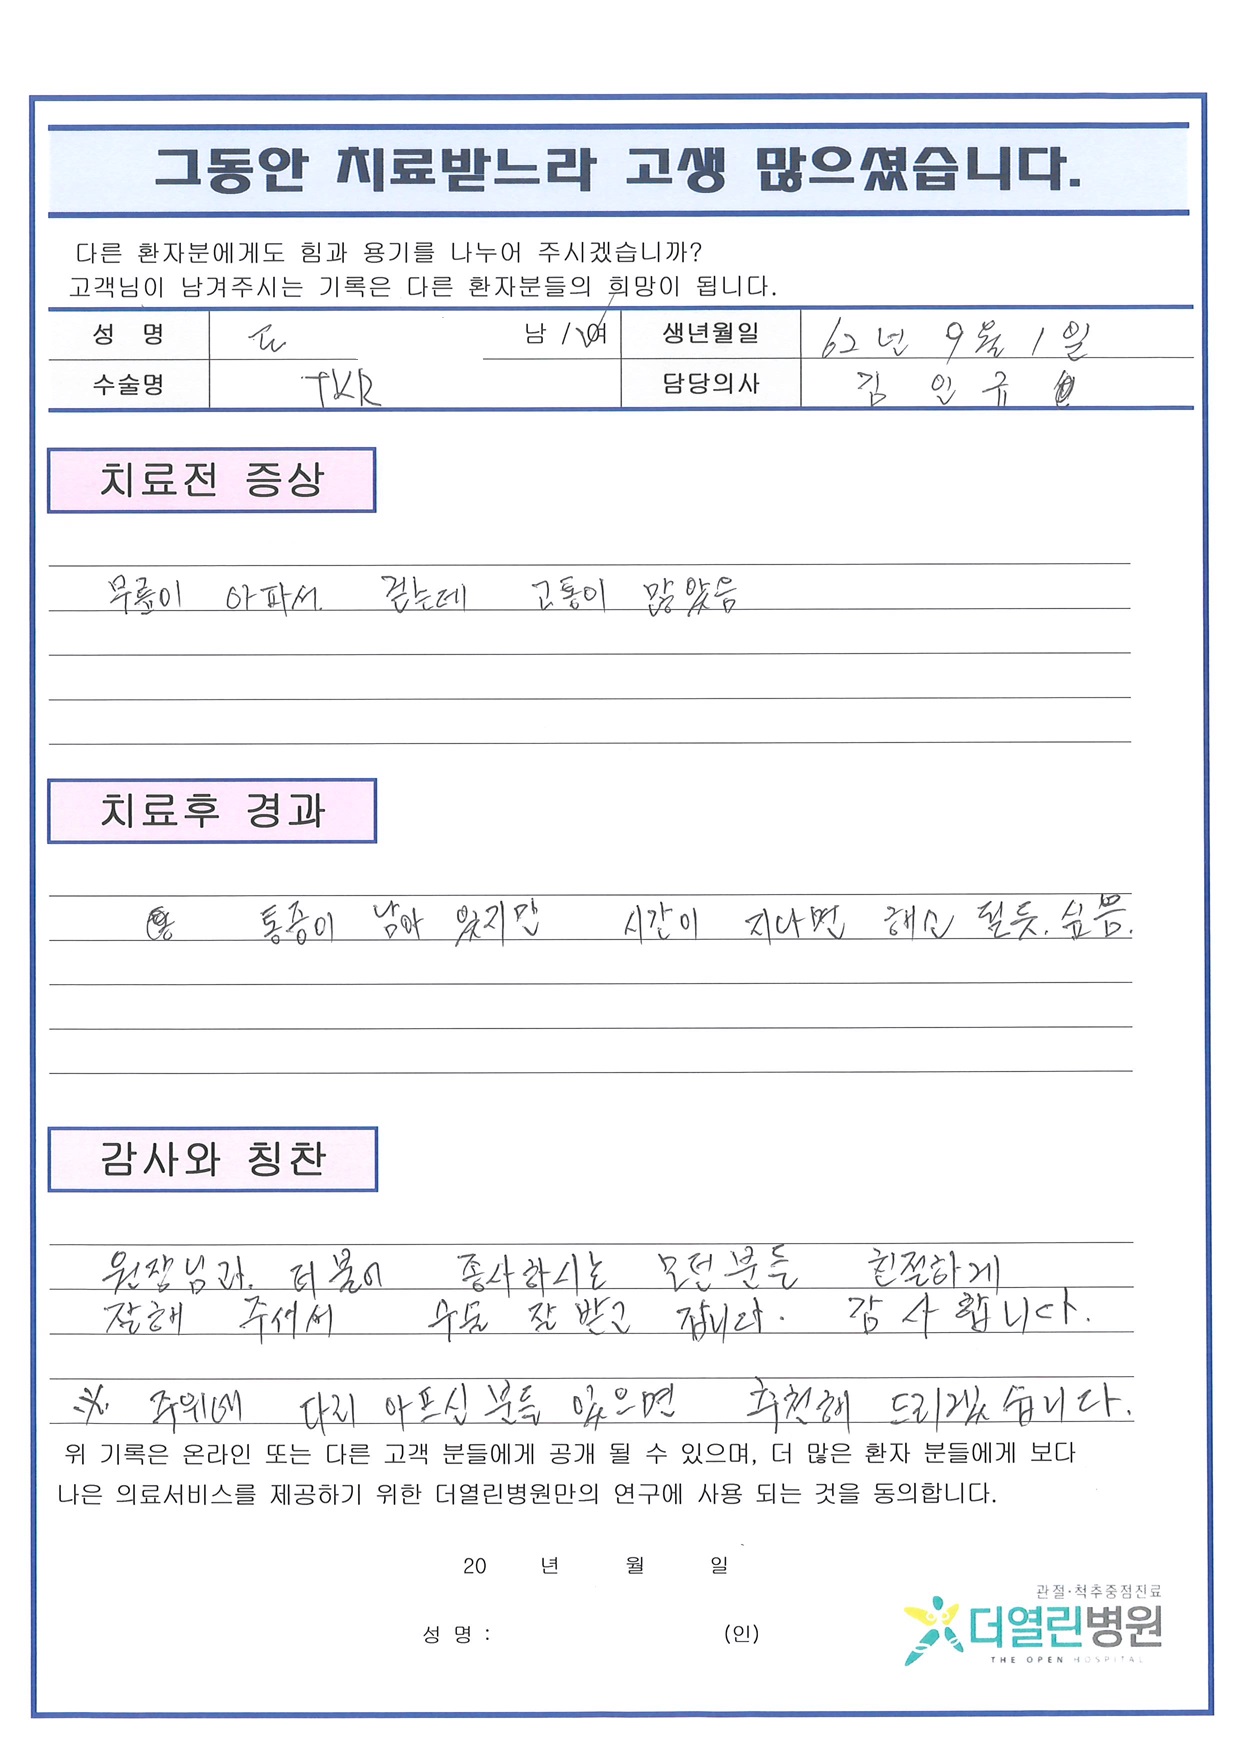 그동안 치료받느라 고생 많으셨습니다.
다른 환자분에게도 힘과 용기를 나누어 주시겠습니까?
고객님이 남겨주시는 기록은 다른 환자분들의 희망이 됩니다.
성 명 남 / 여 생년월일 62년 9월 1일
수술명 TKR 담당의사 김 인 규
치료전 증상
무릎이 아파서. 걷는데 고통이 많았음
치료후 경과
통증이 남아 있지만 시간이 지나면 해소 될듯. 싶음.
감사와 칭찬
원장님과. 더불어 종사하시는 모던분들 친절하게
잘해 주셔서 수술 잘 받고 갑니다. 감사합니다.
※. 주위에 다리 아프신 분들 있으면 추천해 드리겠습니다.
위 기록은 온라인 또는 다른 고객 분들에게 공개 될 수 있으며, 더 많은 환자 분들에게 보다
나은 의료서비스를 제공하기 위한 더열린병원만의 연구에 사용 되는 것을 동의합니다.
20 년 월 일
성 명 : (인)
관절·척추중점진료
더열린병원
THE OPEN HOSPITAL